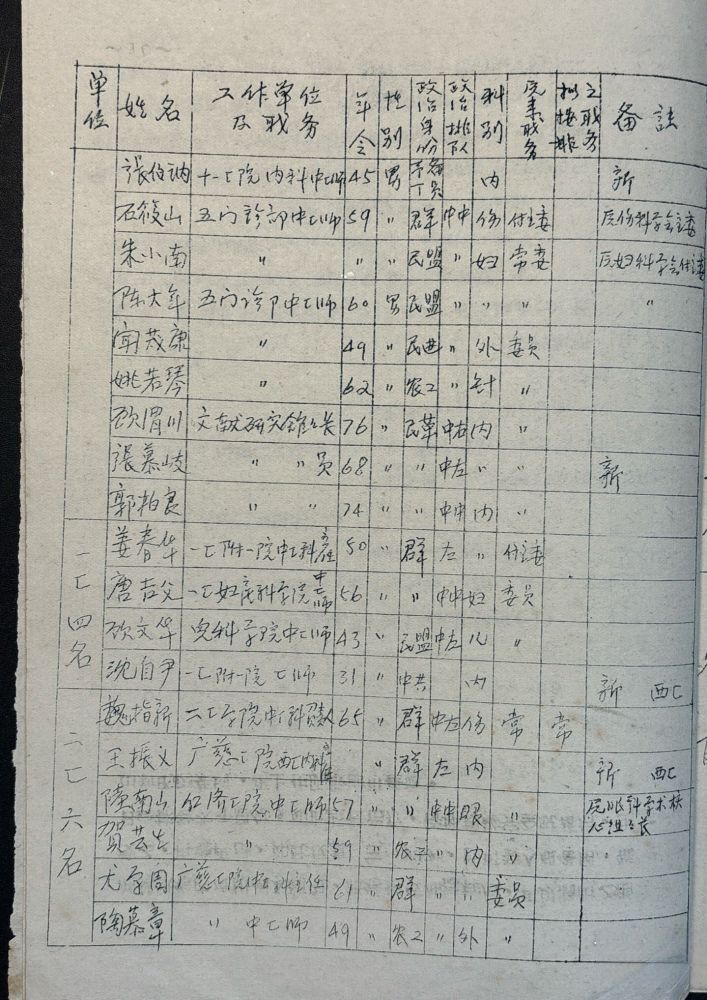 单位 姓名 工作单位及职务 年令 性别 政治身份 政治排队 科别 原来职务 拟安排之职务 备註
張伯讷 十一亡院内科中亡师 45 男 予备丁员 内 新
石筱山 五门診部中亡师 59 〃 群 中中 伤 付主委 原伤科学会主委
朱小南 〃 〃 〃 民盟 〃 妇 常委 原妇科学会付主委
陈大年 五门诊卩中亡师 60 男 民盟 〃 〃 〃 〃
闻茂康 〃 49 〃 民进 〃 外 委员
姚若琴 〃 62 〃 农工 〃 针 〃
顾渭川 文献研究舘舘长 76 〃 民革 中右 内 〃
張慕岐 〃 〃员 68 〃 〃 中左 〃 〃 新
郭柏良 〃 〃 74 〃 〃 中中 内 〃
一亡四名
姜春华 一亡附一院中亡科主任 50 〃 群 左 〃 付主委
唐吉父 一亡妇产科学院中亡师 56 〃 〃 中中 妇 委员
顾文华 児科学院中亡师 43 〃 民盟 中左 儿 〃
沈自尹 一亡附一院亡师 31 〃 中共 内 新 西亡
二亡六名
魏指薪 二亡学院中亡科 65 〃 群 中左 伤 常 常
王振义 广慈亡院西亡内科 〃 群 左 内 新 西亡
陸南山 仁济亡院中亡师 57 〃 〃 中中 眼 〃 原眼科学术核心组组长
賀芸生 〃 59 〃 农工 〃 内 〃
尤学周 广慈亡院中亡科主任 61 〃 群 〃 〃 委员
陶慕章 〃 中亡师 49 〃 农工 〃 外 〃